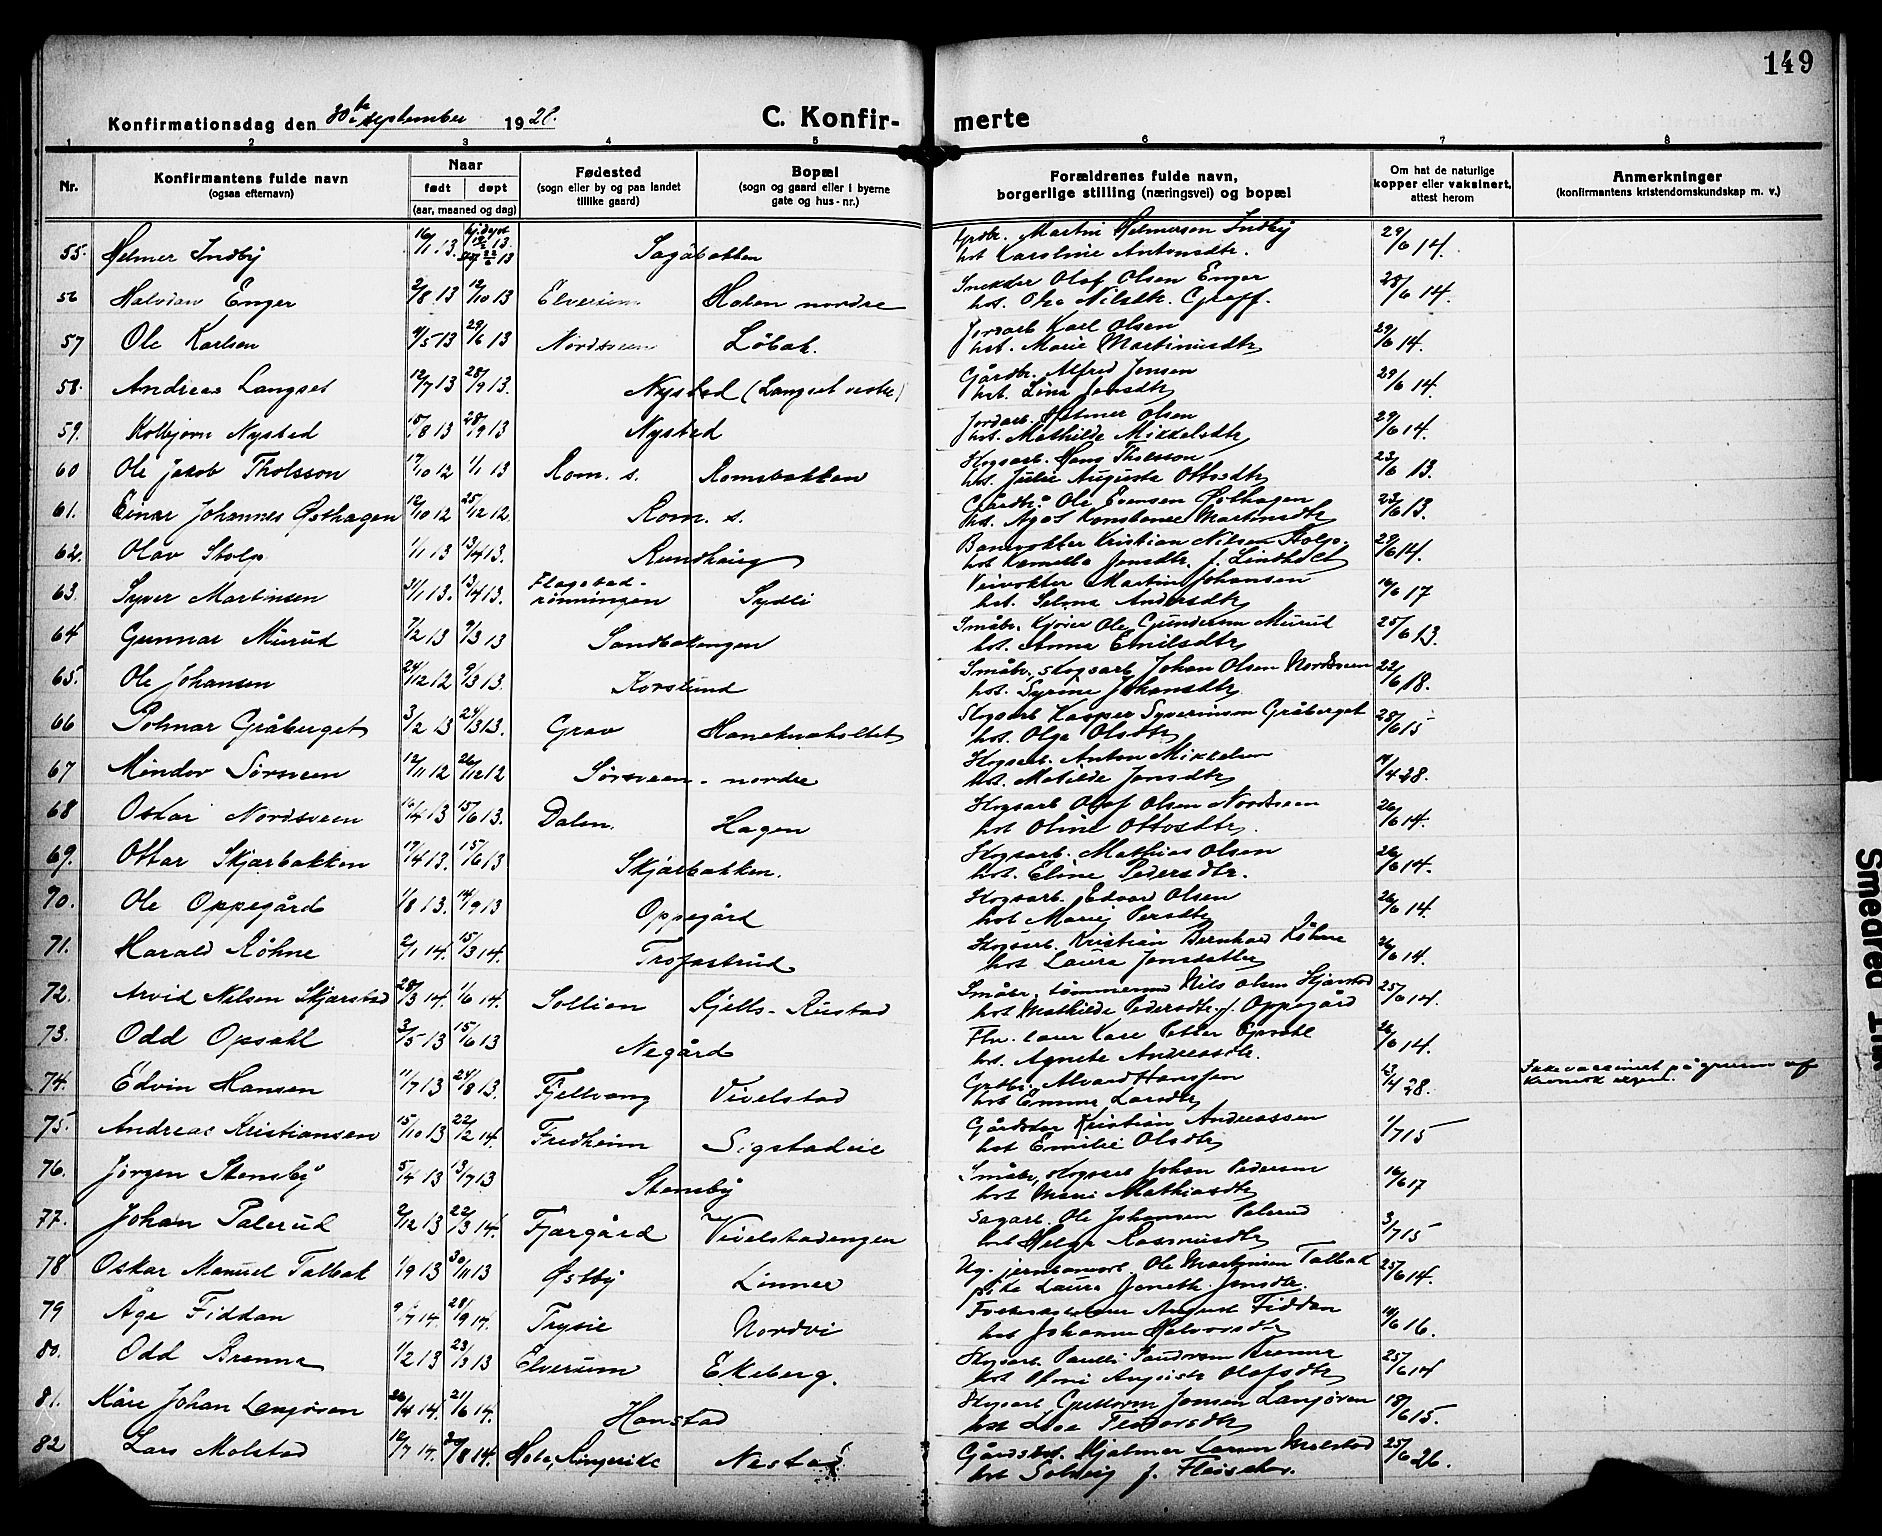 149
Konfirmationsdag den 30te september 1928.
C. Konfirmerte
1 2 3 4 5 6 7 8
Nr.
Konfirmantens fulde navn
(ogsaa efternavn)
Naar
født døpt
(aar, maaned og dag)
Fødested
(sogn eller by og paa landet
tillike gaard)
Bopæl
(sogn og gaard eller i byerne
gate og hus-nr.)
Forældrenes fulde navn,
borgerlige stilling (næringsvei) og bopæl
Om hat de naturlige
kopper eller vaksinert,
attest herom
Anmerkninger
(konfirmantens kristendomskundskap m. v.)
55. Helmer Indby 16/1 13. Sagbakken Martin Helmersen Indby 29/6 14.
hst. Karoline Antonsdtr.
56 Halvdan Enger 2/8 13 12/10 13 Elverum Holen nordre Snekker Olaf Olsen Enger 28/6 14.
57 Ole Karlsen 9/5 13 29/6 13 Nordsveen Löbak. Jordarb. Karl Olsen 29/6 14.
hst. Marie Martiniusdtr
58. Andreas Langset 12/7 13 28/9 13. Nystad (Langset vestre) Gårdbr. Alfred Jensen 29/6 14.
hst. Lina Jensdtr
59. Kolbjørn Nystad 15/8 13 28/9 13 Nystad Jordarb. Helmer Olsen 29/6 14.
hst. Mathilde Mikkelsdtr
60 Ole Jakob Tholsson 17/10 12 1/1 13 Rom. s. Romsbakken Skogsarb. Hans Tholsson 23/6 13.
hst. Julie Augusta Ottosdtr
61. Einar Johannes Østhagen 12/10 12 25/12 12. Rom. s. Gårdbr. Ole Evensen Østhagen 23/6 13.
hst. Konstanse Martinsdtr
62. Olav Stolp 1/1 13 13/4 13. Rundhaug Banevokter Kristian Nilsen Stolp. 29/6 14.
hst Kamilla Jonsdtr f. Lindholt
63. Syver Martinsen 31/1 13. 13/4 13. Flagstad-
rønningen Sydli Veivokter Martin Johansen 16/6 17
hst. Selma Andersdtr
64 Gunnar Murud 7/2 13 9/3 13 Sandbakengen Småbr. Kjører Ole Gundersen Murud 25/6 13.
hst. Anna Emilsdtr
65. Ole Johansen 24/12 12 9/3 13. Korslund Småbr. skogsarb. Johan Olsen Nordsveen 22/6 18.
hst. Syrine Johansdtr
66 Polmar Gråberget 3/2 13 24/3 13. Grav Skogsarb Kasper Syverinsen Gråberget 28/6 15
hst. Olga Olsdtr
67 Mindor Sørsveen 12/11 12 26/12 12 Sørsveen - nordre Skogsarb. Anton Mikkelsen 19/4 28.
hst. Matilde Jonsdtr
68 Oskar Nordsveen 16/4 13 15/6 13. Dalen. Hagen Skogsarb Olaf Olsen Nordsveen 26/6 14.
hst Oline Ottosdtr.
69. Ottar Skjærbakken 17/4 13. 15/6 13 Skjærbakken. Skogsarb. Mathias Olsen 26/6 14.
hst. Eline Pedersdtr.
70. Ole Oppegård 1/8 13. 14/9 13 Oppegård Skogsarb. Edvard Olsen 26/6 14.
hst Marie Persdtr
71. Harald Röhne 2/1 14. 15/3 14. Trofastrud Skogsarb. Kristian Bernhard Röhne 26/6 14.
hst Laura Jonsdatter
72. Arvid Nilsen Skjærstad 28/3 14. 1/6 14. Sollien Kjells-Rustad Småbr. tømmermand Nils Olsen Skjærstad 25/6 14.
hst Mathilde Pedersdtr. f. Oppegård
73. Odd Opsahl 3/5 13 15/6 13 Negård Petter Opsahl 26/6 14.
hst. Agnete Andreasdtr.
74. Edvin Hansen 11/7 13 24/8 13. Fjellvang Vivelstad Alvard Hanssen 13/4 28. Ikke vaccineret på grunn af
kronisk
hst Emma Larsdtr
75. Andreas Kristiansen 15/10 13 22/2 14. Fredheim Sigstadeie Kristian Andreassen 1/7 15
hst Emilie Olsdtr
76. Jørgen Stensby 5/4 13 13/7 13 Stensby Småbr. skogsarb Johan Pedersen 16/6 17
hst Mari Mathiasdtr
77. Johan Palerud 2/12 13 22/3 14. Fjærgård Vivelstadengen Sagarb. Ole Johansen Palerud 3/7 15
hst Helga Rasmusdtr
78 Oskar Manuel Talbak 1/9 13 30/11 13 Østby Linner Ole Martinsen Talbak 25/6 14.
pike Laura Jensdtr.
79 Åge Fiddan 28/9 14. Trysil Nordvi August Fiddan 16.
hst Johanne Halvorsdtr
80. Odd Brenna 1/2 13 23/3 13 Elverum Ekeberg. Skogsarb. Brenna 25/6 14
Olafsdtr
81. Kåre Johan Langören 26/4 14. 21/6 14. Hanstad Skogsarb Guttorm Jensen Langören 18/6 15.
82 Lars Molstad 12/7 14. Hole, Ringerike Nestad Hjalmar Larsen Molstad 25/6 26.
hst Solveig f. Fleischer.
Smeared Ink